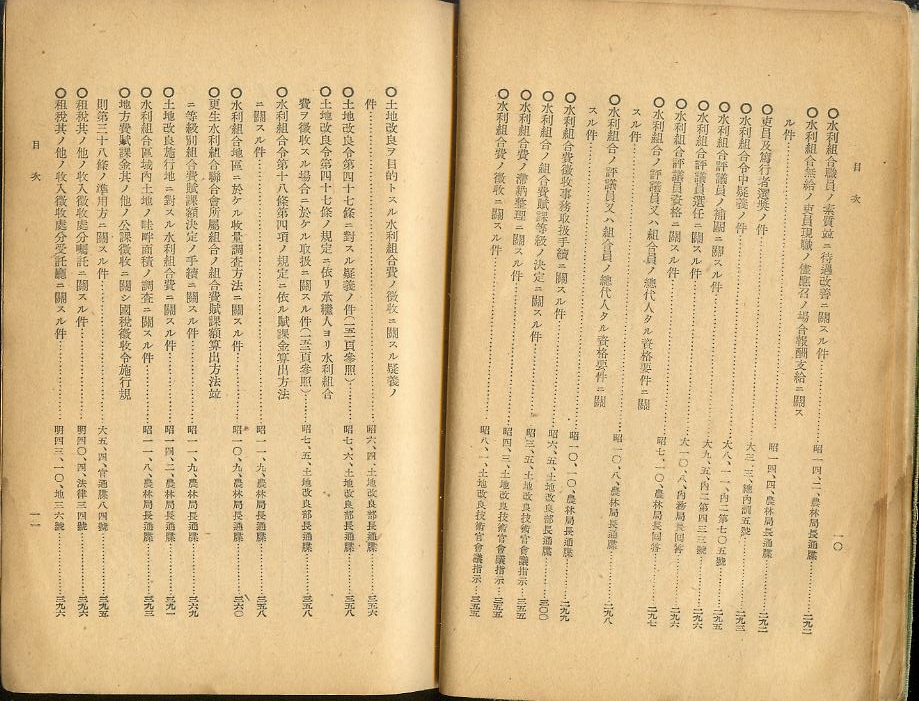 目次
一〇
〇水利組合職員ノ素質竝ニ待遇改善ニ關スル件……昭一四、二、農林局長通牒……二九二
〇水利組合無給ノ吏員現職ノ儘應召ノ場合報酬支給ニ關ス
ル件
〇吏員及篤行者選奬ノ件……昭一四、四、農林局長通牒……二九二
〇水利組合令中疑義ノ件……大三、三、總內訓五號……二九三
〇水利組合評議員ノ補闕ニ關スル件……大八、一、內二第七〇五號……二九五
〇水利組合評議員選任ニ關スル件……大九、五、內二第四三三號……二九六
〇水利組合評議員資格ニ關スル件……大一〇、八、內務局長回答……二九六
〇水利組合ノ評議員又ハ組合員ノ總代人タル資格要件ニ關
スル件……昭七、一〇、農林局長回答……二九七
〇水利組合ノ評議員又ハ組合員ノ總代人タル資格要件ニ關
スル件……昭一〇、八、農林局長通牒……二九八
〇水利組合費徵收事務取扱手續ニ關スル件……昭一〇、一〇、農林局長通牒……二九九
〇水利組合ノ組合費賦課等級ノ決定ニ關スル件……昭六、五、土地改良部長通牒……三〇〇
〇水利組合費ノ滯納整理ニ關スル件……昭三、五、土地改良技術官會議指示……三五五
〇水利組合費ノ徵收ニ關スル件……昭四、三、土地改良技術官會議指示……三五五
昭八、一、土地改良技術官會議指示……三五五
〇土地改良ヲ目的トスル水利組合費ノ徵收ニ關スル疑義ノ
件……昭六、四、土地改良部長通牒……三五六
〇土地改良令第四十七條ニ對スル疑義ノ件(一五一頁參照)……昭七、六、土地改良部長通牒……三五八
〇土地改良令第四十七條ノ規定ニ依リ承繼人ヨリ水利組合
費ヲ徵收スル場合ニ於ケル取扱ニ關スル件(一五二頁參照)……昭七、五、土地改良部長通牒……三五八
〇水利組合令第十八條第四項ノ規定ニ依ル賦課金算出方法
ニ關スル件……昭一一、九、農林局長通牒……三五八
〇水利組合地區ニ於ケル收量調査方法ニ關スル件……昭一〇、九、農林局長通牒……三六〇
〇更生水利組合聯合會所屬組合ノ組合費賦課額算出方法竝
ニ等級別組合費賦課額決定ノ手續ニ關スル件……昭一一、九、農林局長通牒……三六九
〇土地改良施行地ニ對スル水利組合費ニ關スル件……昭一四、二、農林局長通牒……三九一
〇水利組合區域內土地ノ畦畔面積ノ調査ニ關スル件……昭一一、八、農林局長通牒……三九三
〇地方費賦課金其ノ他ノ公課徵收ニ關シ國稅徵收令施行規
則第三十八條ノ準用方ニ關スル件……大五、四、官通牒八四號……三九五
〇租稅其ノ他ノ收入徵收處分囑託ニ關スル件……明四〇、四、法律三四號……三九六
〇租稅其ノ他ノ收入徵收處分受託廳ニ關スル件……明四三、一〇、地三六號……三九六
目次
一一